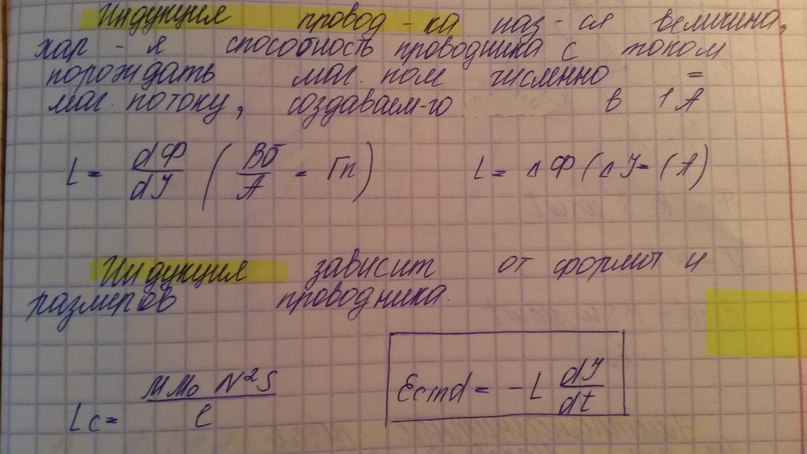 Индукция провод-ка наз-ся величина,
хар-я способность проводника с током
порождать маг. пом численно =
маг. потоку, создаваем-го в 1 А
L = dФ/dУ (Вб/А = Гн) L = ΔФ (ΔУ = (А)
Индукция зависит от формы и
размеров проводника.
Lc = ММо N²S / l
Ecind = -L dУ/dt